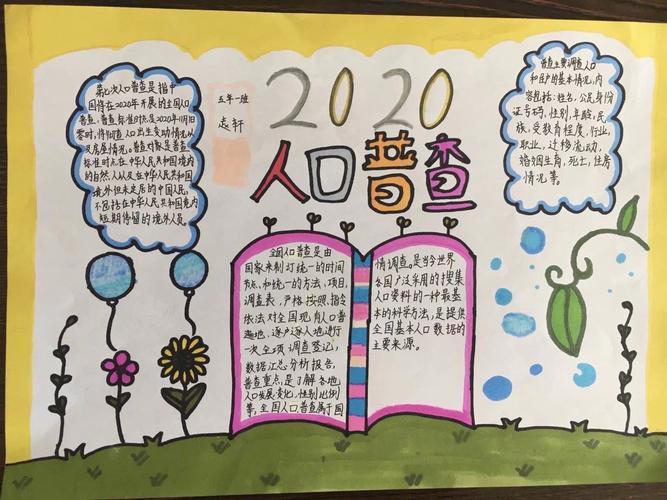 2020
人口普查
五年一班
志轩
第七次人口普查是指中
国将在2020年开展的全国人口
普查。普查标准时点是2020年11月1日
零时,将彻查人口出生变动情况以
及房屋情况。普查对象是普查
标准时点在中华人民共和国境内
的自然人以及在中华人民共和国
境外但未定居的中国公民,
不包括在中华人民共和国境内
短期停留的境外人员。
普查主要调查人口
和住户的基本情况,内
容包括:姓名、公民身份
证号码,性别,年龄,民
族,受教育程度,行业,
职业,迁移流动,
婚姻生育,死亡,住房
情况等。
全国人口普查是由
国家来制订统一的时间
节点和统一的方法、项目,
调查表,严格按照指令
依法对全国现有人口普
遍地、逐户逐人地进行
一次全项调查登记,
数据汇总分析报告,
普查重点是了解各地
人口发展变化,性别比例
等,全国人口普查属于国
情调查。是当今世界
各国广泛采用的搜集
人口资料的一种最基
本的科学方法,是提供
全国基本人口数据的
主要来源。